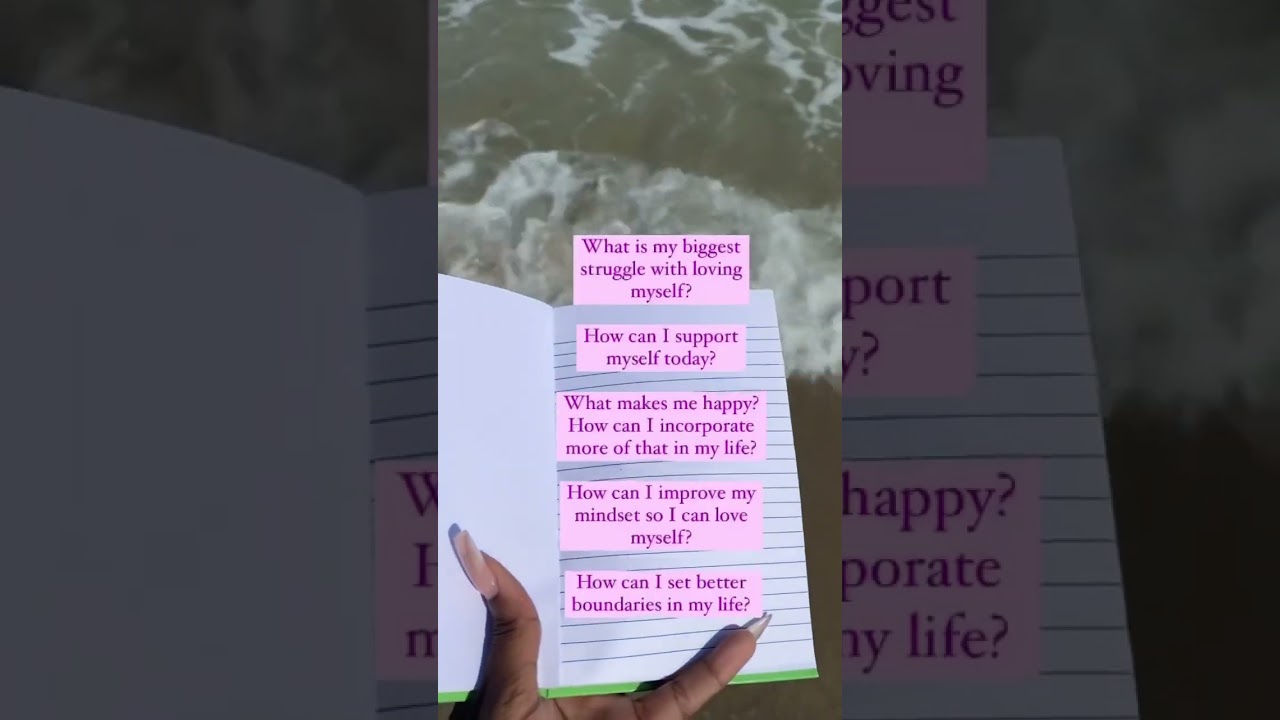 What is my biggest
struggle with loving
myself?
How can I support
myself today?
What makes me happy?
How can I incorporate
more of that in my life?
How can I improve my
mindset so I can love
myself?
How can I set better
boundaries in my life?